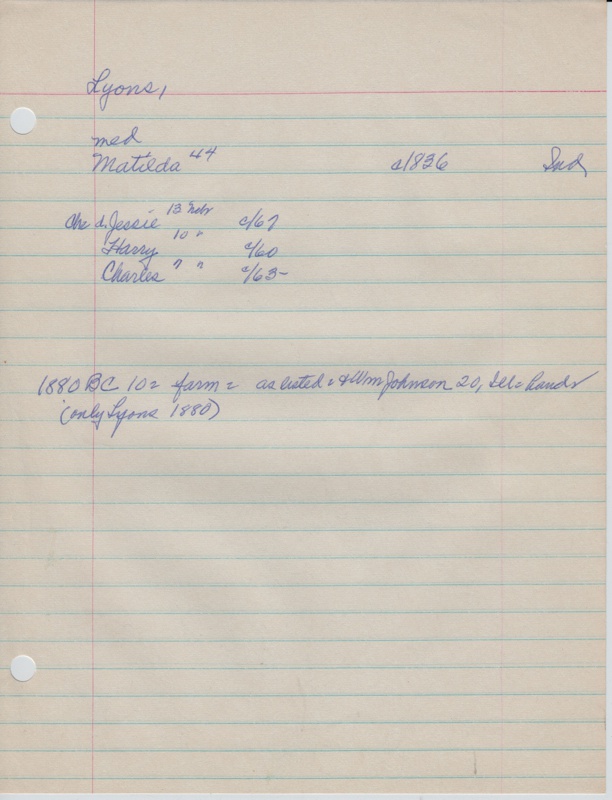 Lyons,
med
Matilda 44 c1836 Ind,
Che d. Jessie 13 Nebr c/67
Harry 10 " c/60
Charles 7 " c/63-
1880 BC 10 = farm = as listed = & Wm Johnson 20, Ill = hand
(only Lyons 1880)